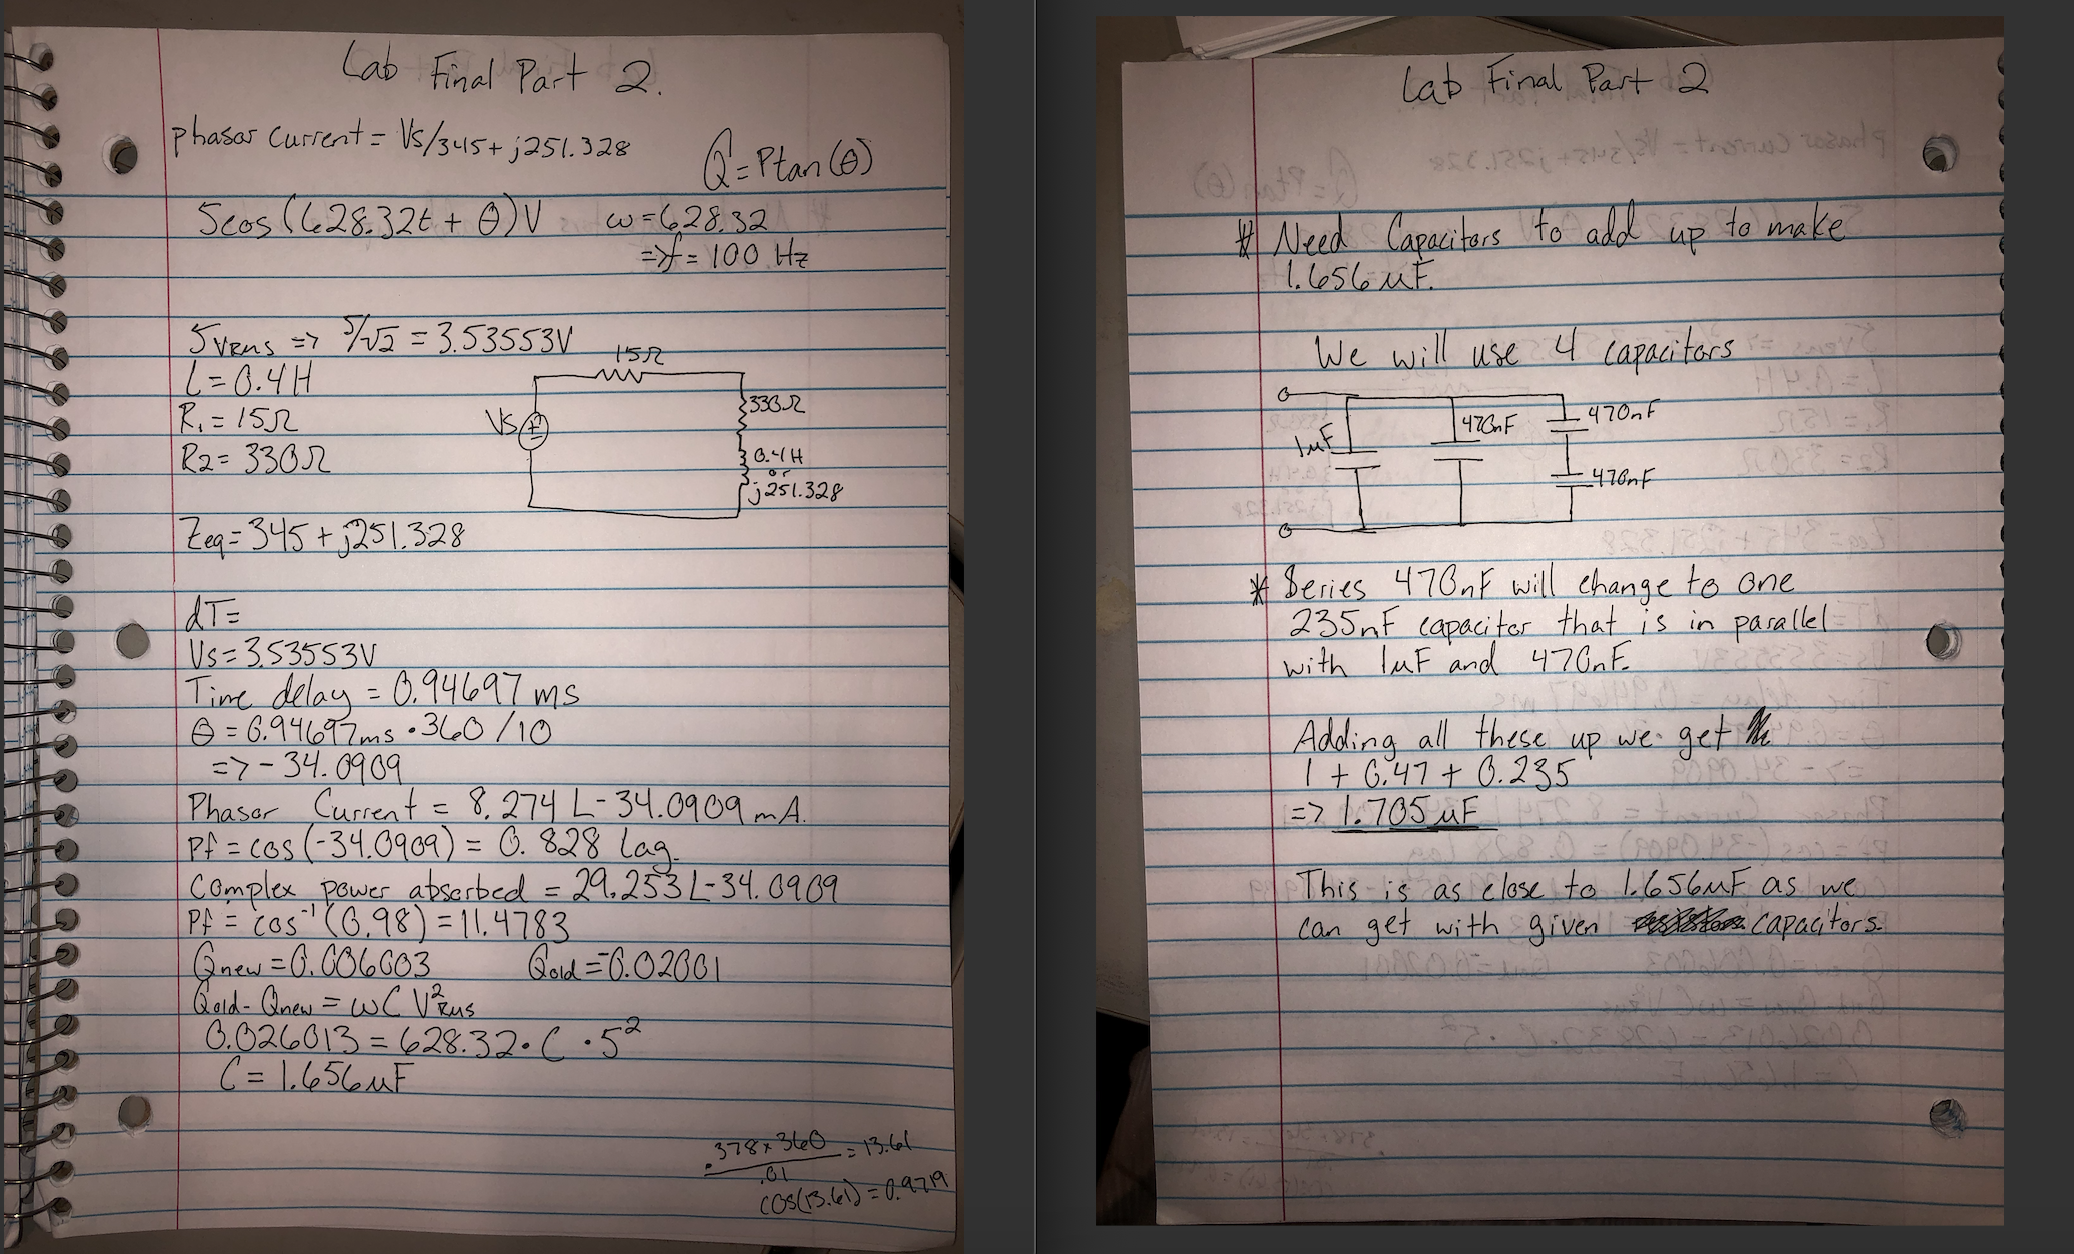 Lab Final Part 2.
phasor current = Vs/345+j251.328
Q = Ptan(θ)
5cos(628.32t + θ)V ω=628.32
=> f = 100 Hz
5VRMS => 5/√2 = 3.53553V
L = 0.4H
R1 = 15Ω
R2 = 330Ω
15Ω
Vs
330Ω
0.4H
or
j251.328
Zeq = 345 + j251.328
dT=
Vs = 3.53553V
Time delay = 0.94697 ms
θ = 0.94697ms • 360 / 10
=> - 34.0909
Phasor Current = 8.274 L-34.0909 mA.
Pf = cos(-34.0909) = 0.828 Lag.
Complex power absorbed = 29.253 L-34.0909
Pf = cos⁻¹(0.98) = 11.4783
Qnew = 0.006003 Qold = -0.02001
Qold - Qnew = ωC V²RMS
0.026013 = 628.32 • C • 5²
C = 1.656uF
.378 x 360 / .01 = 13.61
cos(13.61) = 0.9719
Lab Final Part 2
* Need Capacitors to add up to make
1.656uF.
We will use 4 capacitors
1uF
470nF
470nF
470nF
* Series 470nF will change to one
235nF capacitor that is in parallel
with 1uF and 470nF.
Adding all these up we get
1 + 0.47 + 0.235
=> 1.705uF
This is as close to 1.656uF as we
can get with given capacitors.